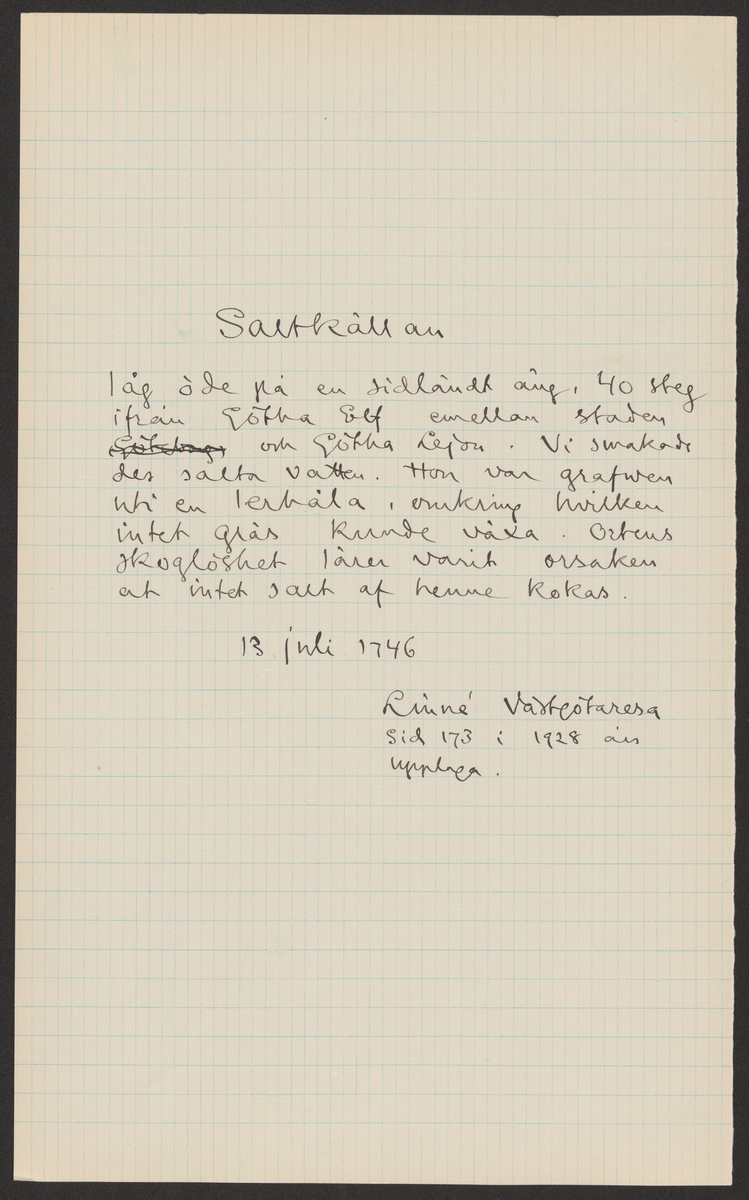 Saltkällan
låg öde på en sidländt äng, 40 steg
ifrån Götha Elf emellan staden
Göteborg och Götha Lejon. Vi smakade
des salta vatten. Hon var grafwen
uti en lerhåla, omkring hvilken
intet gräs kunde växa. Ortens
skoglöshet lärer varit orsaken
at intet salt af henne kokas.
13 juli 1746
Linné Västgötaresa
Sid 173 i 1928 års
upplaga.